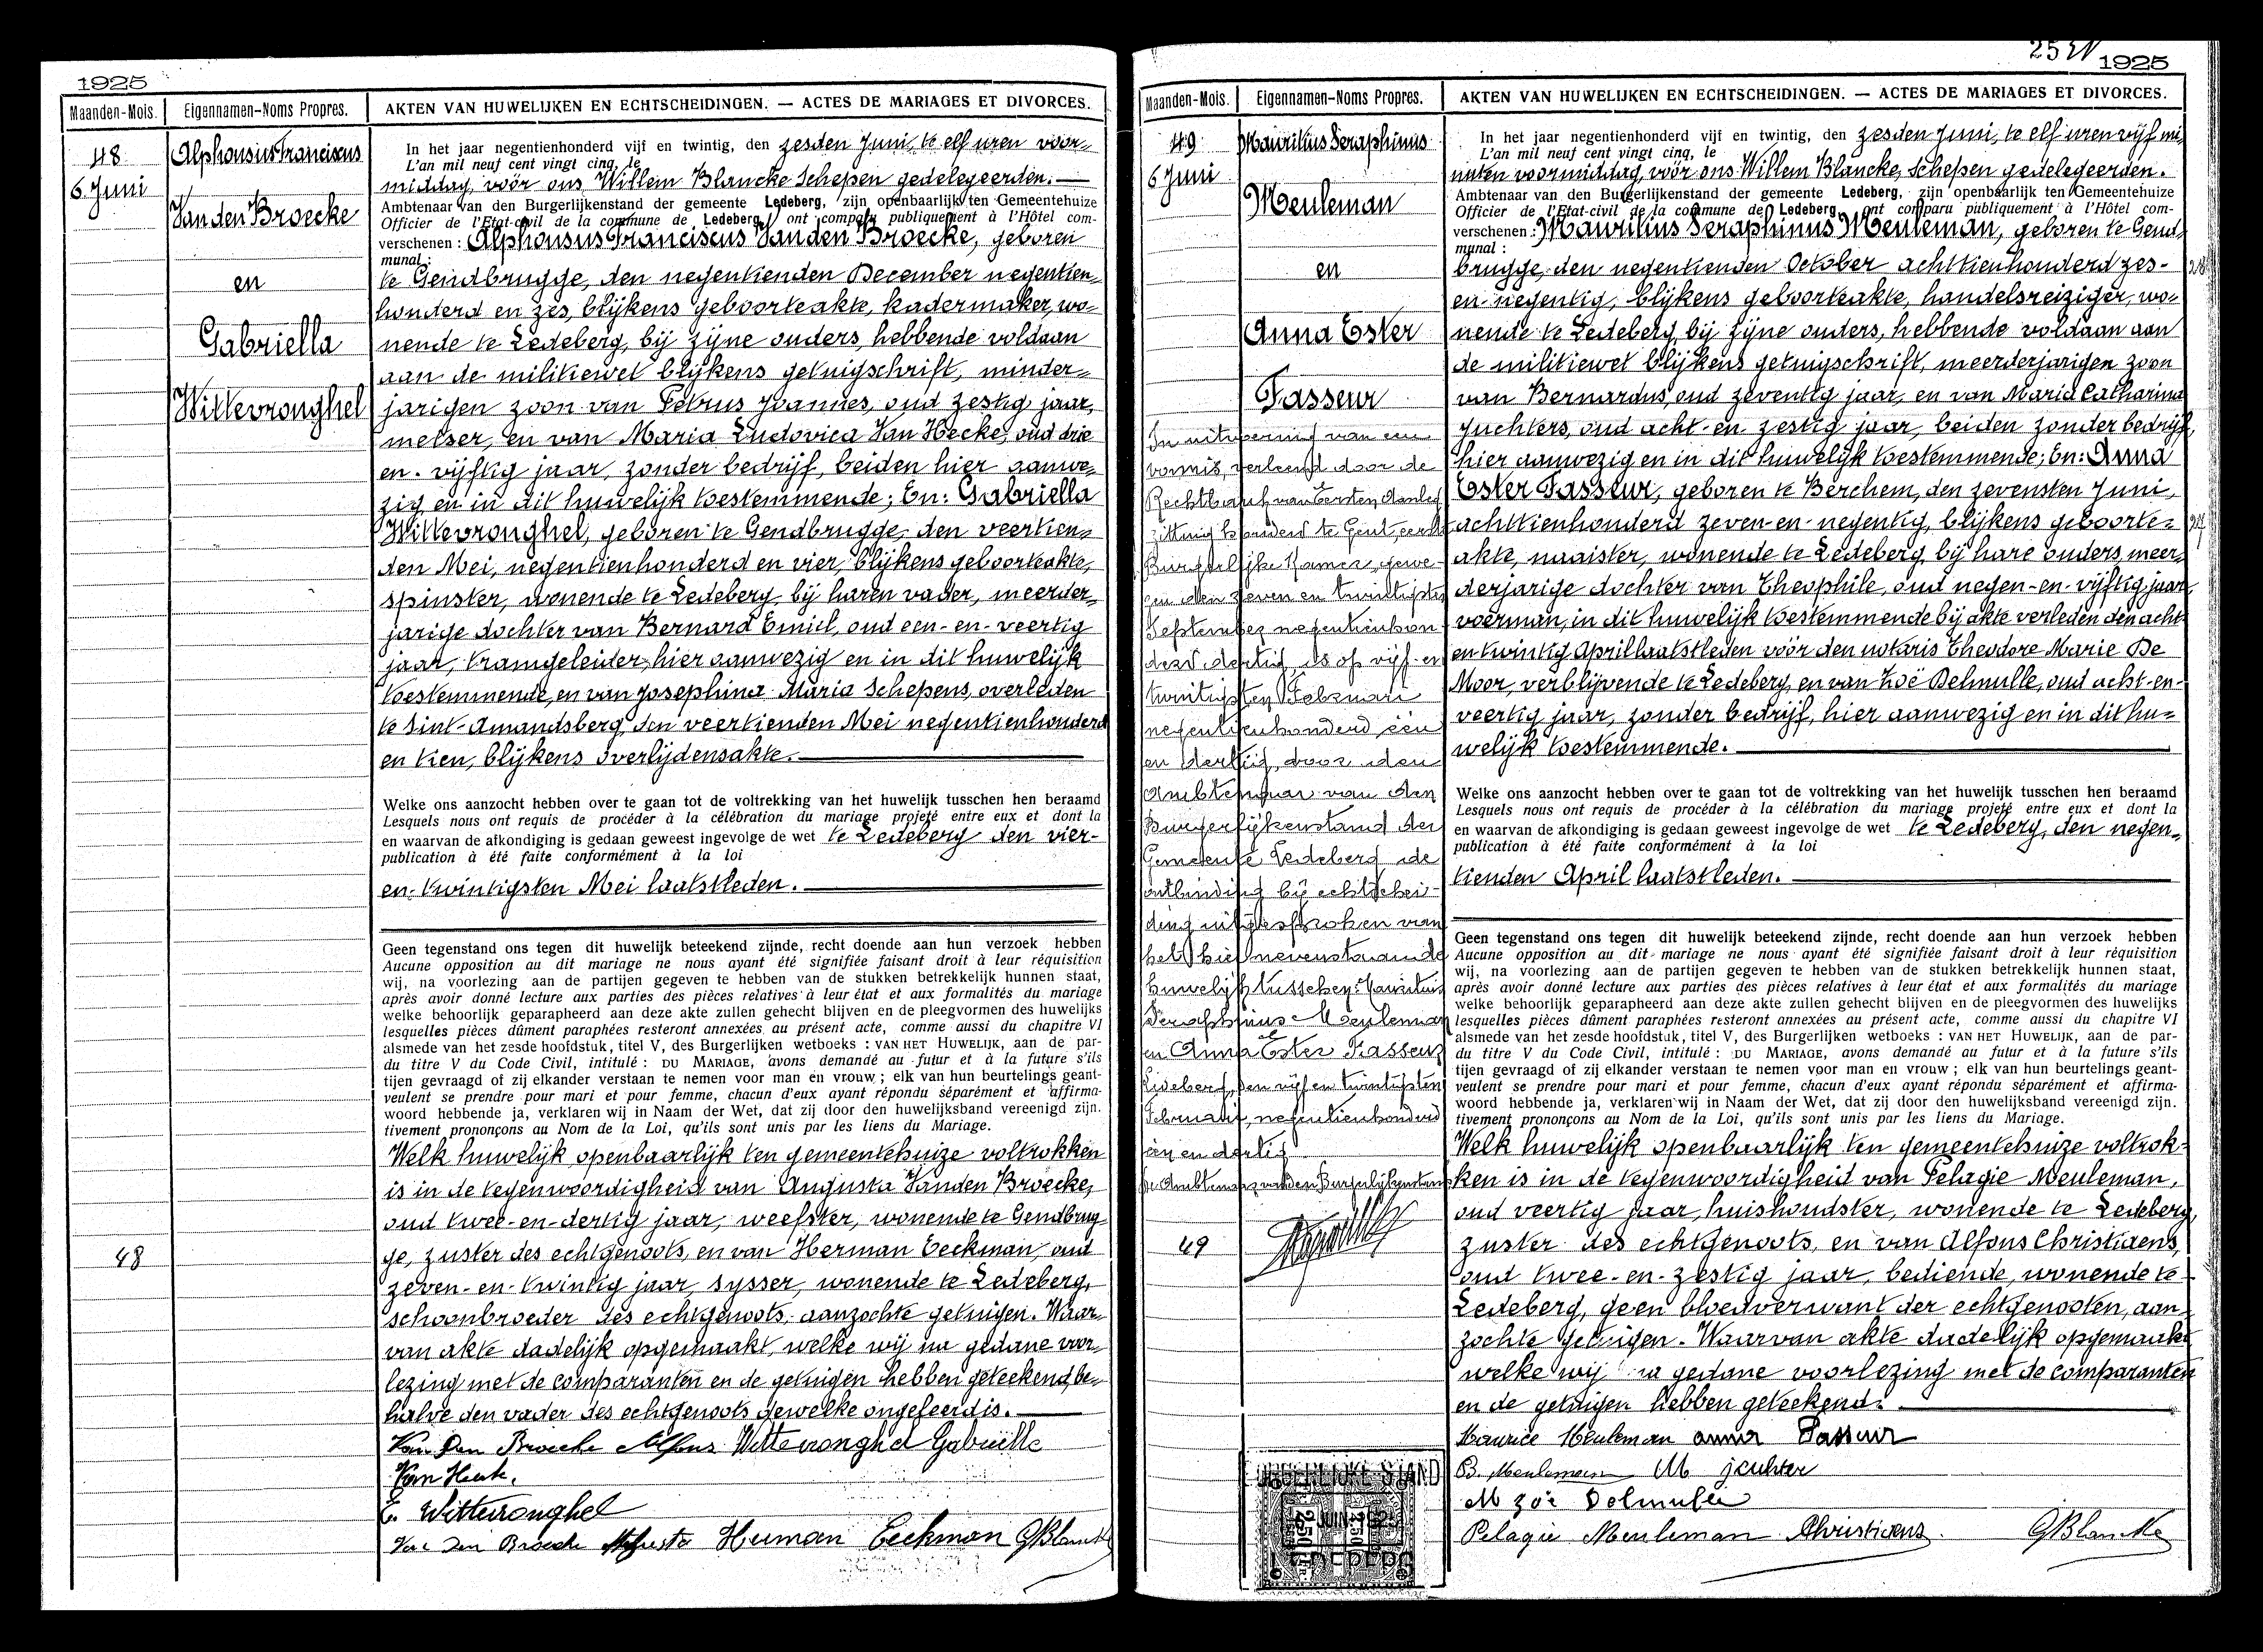 1925
Maanden-Mois. Eigennamen-Noms Propres. AKTEN VAN HUWELIJKEN EN ECHTSCHEIDINGEN. — ACTES DE MARIAGES ET DIVORCES.
48
6 Juni
Alphonsius Franciscus
Van den Broecke
en
Gabriella
Wittevronghel
In het jaar negentienhonderd vijf en twintig, den zesden Juni, te elf uren voor-
L'an mil neuf cent vingt cinq, le
middag, vóór ons Willem Blancke Schepen gedelegeerden.
Ambtenaar van den Burgerlijkenstand der gemeente Ledeberg, zijn openbaarlijk ten Gemeentehuize
Officier de l'Etat-civil de la commune de Ledeberg, ont comparu publiquement à l'Hôtel com-
verschenen : Alphonsus Franciscus Van den Broecke, geboren
munal :
te Gendbrugge, den negentienden December negentien-
honderd en zes, blijkens geboorteakte, kadermaker, wo-
nende te Ledeberg, bij zijne ouders, hebbende voldaan
aan de militiewet blijkens getuigschrift, minder-
jarigen zoon van Petrus Joannes, oud zestig jaar,
metser, en van Maria Ludovica Van Hecke, oud drie
en-vijftig jaar, zonder bedrijf, beiden hier aanwe-
zig en in dit huwelijk toestemmende; En: Gabriella
Wittevronghel, geboren te Gendbrugge, den veertien-
den Mei, negentienhonderd en vier, blijkens geboorteakte,
spinster, wonende te Ledeberg, bij haren vader, meerder-
jarige dochter van Bernard Emiel, oud een-en-veertig
jaar, tramgeleider, hier aanwezig en in dit huwelijk
toestemmende, en van Josephina Maria Schepens, overleden
te Sint-Amandsberg, den veertienden Mei negentienhonderd
en tien, blijkens overlijdensakte.
Welke ons aanzocht hebben over te gaan tot de voltrekking van het huwelijk tusschen hen beraamd
Lesquels nous ont requis de procéder à la célébration du mariage projeté entre eux et dont la
en waarvan de afkondiging is gedaan geweest ingevolge de wet te Ledeberg den vier-
publication à été faite conformément à la loi
en-twintigsten Mei laatstleden.
Geen tegenstand ons tegen dit huwelijk beteekend zijnde, recht doende aan hun verzoek hebben
Aucune opposition au dit mariage ne nous ayant été signifiée faisant droit à leur réquisition
wij, na voorlezing aan de partijen gegeven te hebben van de stukken betrekkelijk hunnen staat,
après avoir donné lecture aux parties des pièces relatives à leur état et aux formalités du mariage
welke behoorlijk geparapheerd aan deze akte zullen gehecht blijven en de pleegvormen des huwelijks
lesquelles pièces dûment paraphées resteront annexées au présent acte, comme aussi du chapitre VI
alsmede van het zesde hoofdstuk, titel V, des Burgerlijken wetboeks : VAN HET HUWELIJK, aan de par-
du titre V du Code Civil, intitulé : DU MARIAGE, avons demandé au futur et à la future s'ils
tijen gevraagd of zij elkander verstaan te nemen voor man en vrouw ; elk van hun beurtelings geant-
veulent se prendre pour mari et pour femme, chacun d'eux ayant répondu séparément et affirma-
woord hebbende ja, verklaren wij in Naam der Wet, dat zij door den huwelijksband vereenigd zijn.
tivement prononçons au Nom de la Loi, qu'ils sont unis par les liens du Mariage.
Welk huwelijk openbaarlijk ten gemeentehuize voltrokken
is in de tegenwoordigheid van Augusta Vanden Broecke,
oud twee-en-dertig jaar, weefster, wonende te Gendbrug-
ge, zuster des echtgenoots, en van Herman Eeckman, oud
zeven-en-twintig jaar, sysser, wonende te Ledeberg,
schoonbroeder des echtgenoots, aanzochte getuigen. Waar-
van akte dadelijk opgemaakt, welke wij na gedane voor-
lezing met de comparanten en de getuigen hebben geteekend, be-
halve den vader des echtgenoots dewelke ongeleerd is.
48
Van Den Broecke Alfons Wittevronghel Gabriëlle
Van Heck.
E. Wittevronghel
Van Den Broecke Augusta Herman Eeckman GBlancke
25
1925
Maanden-Mois. Eigennamen-Noms Propres. AKTEN VAN HUWELIJKEN EN ECHTSCHEIDINGEN. — ACTES DE MARIAGES ET DIVORCES.
49
6 Juni
Maurilius Seraphinus
Meuleman
en
Anna Ester
Tasseur
In uitvoering van een
vonnis, verleend door de
Rechtbank van Eersten Aanleg
zitting houdend te Gent, eerste
Burgerlijke Kamer, gewe-
zen den zeven en twintigsten
September negentienhon
derd dertig, is op vijf-en
twintigsten Februari
negentienhonderd, één
en dertig, door den
Ambtenaar van den
Burgerlijkenstand der
Gemeente Ledeberg de
ontbinding bij echtschei-
ding uitgesproken van
het hiernevenstaande
huwelijk tusschen: Maurilius
Seraphinus Meuleman
en Anna Ester Tasseur
Ledeberg, den vijf en twintigsten
Februari, negentienhonderd
één en dertig
De Ambtenaar van den Burgerlijkenstand
49
In het jaar negentienhonderd vijf en twintig, den zesden Juni, te elf uren vijf mi-
L'an mil neuf cent vingt cinq, le
nuten voormiddag, vóór ons Willem Blancke, Schepen gedelegeerden.
Ambtenaar van den Burgerlijkenstand der gemeente Ledeberg, zijn openbaarlijk ten Gemeentehuize
Officier de l'Etat-civil de la commune de Ledeberg, ont comparu publiquement à l'Hôtel com-
verschenen : Maurilius Seraphinus Meuleman, geboren te Gend-
munal :
brugge, den negentienden October achttienhonderd zes-
en-negentig, blijkens geboorteakte, handelsreiziger, wo-
nende te Ledeberg, bij zijne ouders, hebbende voldaan aan
de militiewet blijkens getuigschrift, meerderjarigen zoon
van Bernardus, oud zeventig jaar, en van Maria Catharina
Juchters, oud acht-en zestig jaar, beiden zonder bedrijf,
hier aanwezig en in dit huwelijk toestemmende; En: Anna
Ester Tasseur, geboren te Berchem, den zevensten Juni,
achttienhonderd zeven-en-negentig, blijkens geboorte-
akte, naaister, wonende te Ledeberg, bij hare ouders, meer-
derjarige dochter van Theophile, oud negen-en-vijftig jaar,
voerman, in dit huwelijk toestemmende bij akte verleden den acht
en twintig April laatstleden vóór den notaris Theodore Marie De
Moor, verblijvende te Ledeberg, en van Zoë Delmulle, oud acht-en-
veertig jaar, zonder bedrijf, hier aanwezig en in dit hu-
welijk toestemmende.
Welke ons aanzocht hebben over te gaan tot de voltrekking van het huwelijk tusschen hen beraamd
Lesquels nous ont requis de procéder à la célébration du mariage projeté entre eux et dont la
en waarvan de afkondiging is gedaan geweest ingevolge de wet te Ledeberg, den negen-
publication à été faite conformément à la loi
tienden April laatstleden.
Geen tegenstand ons tegen dit huwelijk beteekend zijnde, recht doende aan hun verzoek hebben
Aucune opposition au dit mariage ne nous ayant été signifiée faisant droit à leur réquisition
wij, na voorlezing aan de partijen gegeven te hebben van de stukken betrekkelijk hunnen staat,
après avoir donné lecture aux parties des pièces relatives à leur état et aux formalités du mariage
welke behoorlijk geparapheerd aan deze akte zullen gehecht blijven en de pleegvormen des huwelijks
lesquelles pièces dûment paraphées resteront annexées au présent acte, comme aussi du chapitre VI
alsmede van het zesde hoofdstuk, titel V, des Burgerlijken wetboeks : VAN HET HUWELIJK, aan de par-
du titre V du Code Civil, intitulé : DU MARIAGE, avons demandé au futur et à la future s'ils
tijen gevraagd of zij elkander verstaan te nemen voor man en vrouw ; elk van hun beurtelings geant-
veulent se prendre pour mari et pour femme, chacun d'eux ayant répondu séparément et affirma-
woord hebbende ja, verklaren wij in Naam der Wet, dat zij door den huwelijksband vereenigd zijn.
tivement prononçons au Nom de la Loi, qu'ils sont unis par les liens du Mariage.
Welk huwelijk openbaarlijk ten gemeentehuize voltrok-
ken is in de tegenwoordigheid van Pelagie Meuleman,
oud veertig jaar, huishoudster, wonende te Ledeberg,
zuster des echtgenoots, en van Alfons Christiaens,
oud twee-en-zestig jaar, bediende, wonende te
Ledeberg, geen bloedverwant der echtgenooten, aan-
zochte getuigen. Waarvan akte dadelijk opgemaakt
welke wij na gedane voorlezing met de comparanten
en de getuigen hebben geteekend.
Maurice Meuleman anna Tasseur
B. Meuleman M juchter
M zoë Delmulle
Pelagie Meuleman AChristiaens. GBlancke